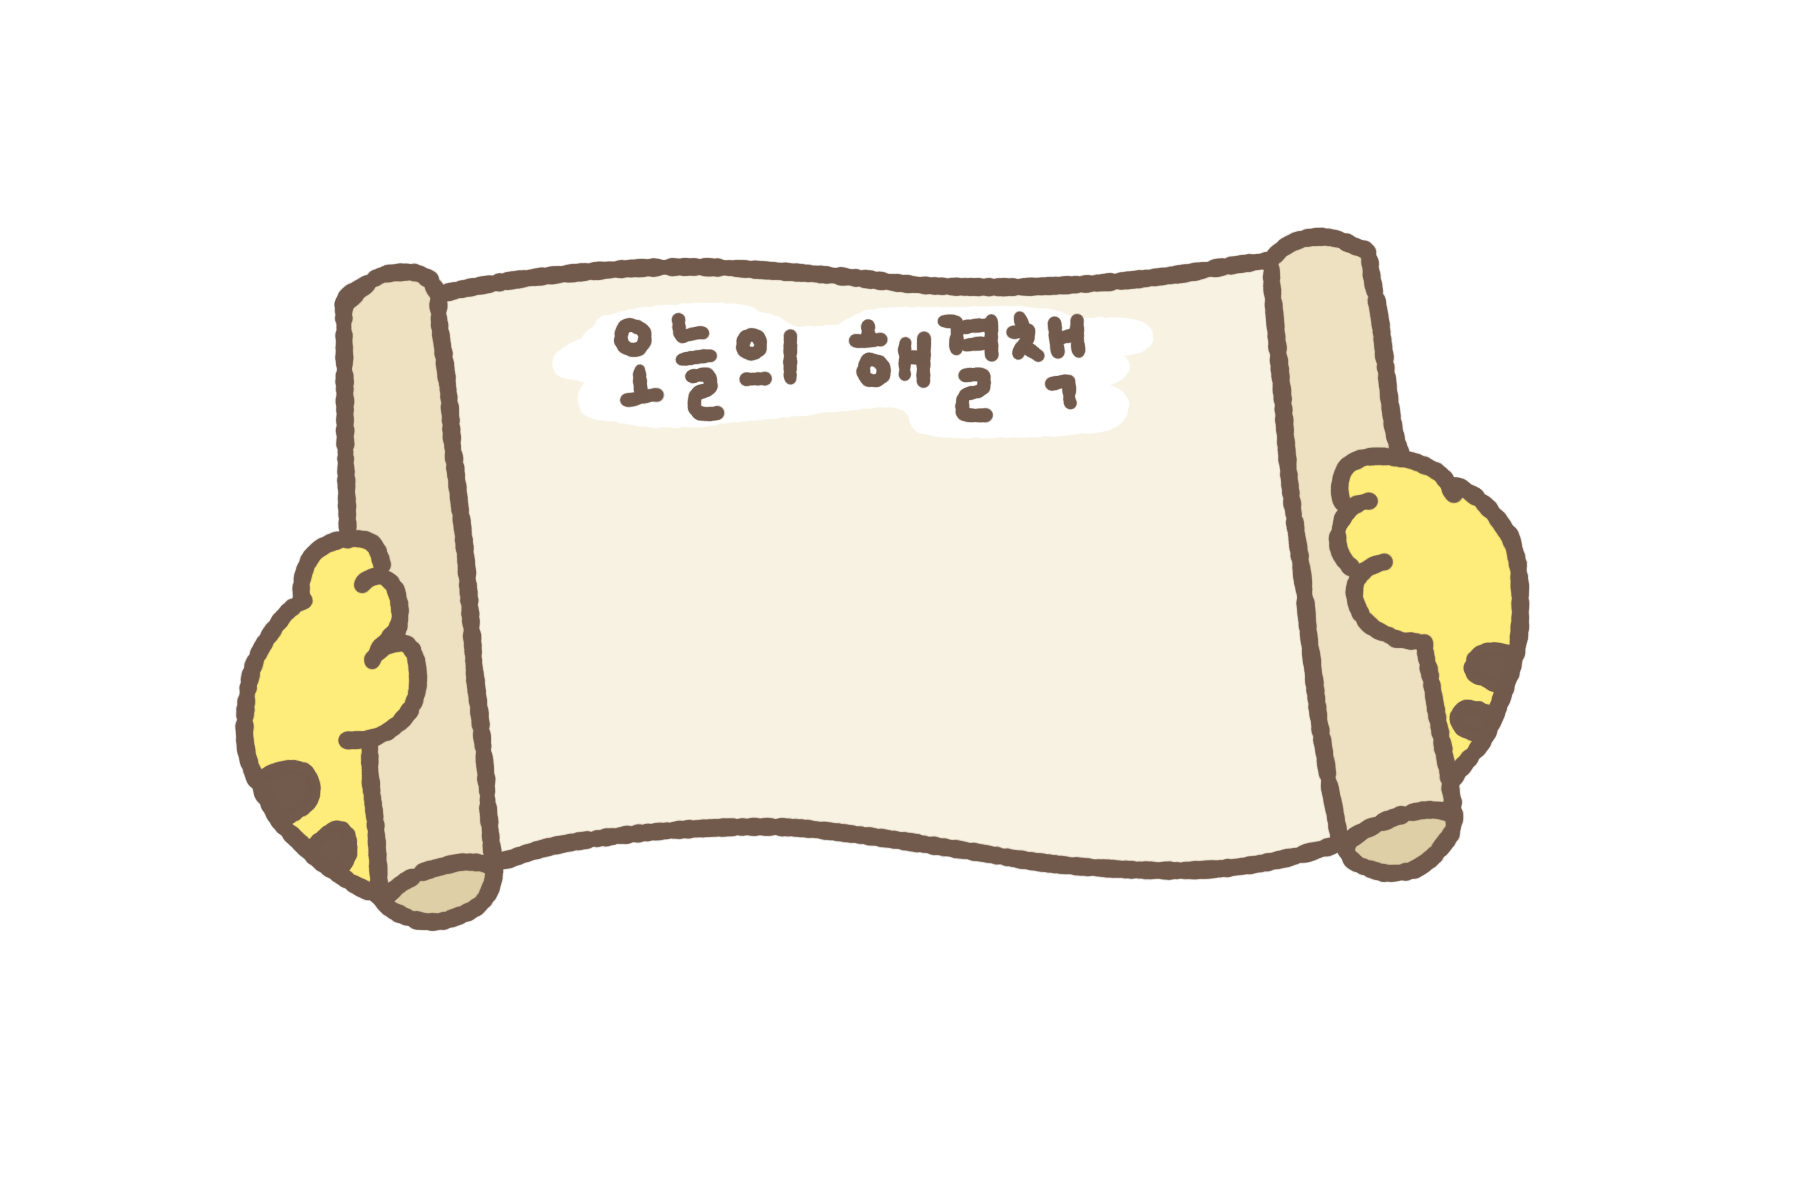 오늘의 해결책